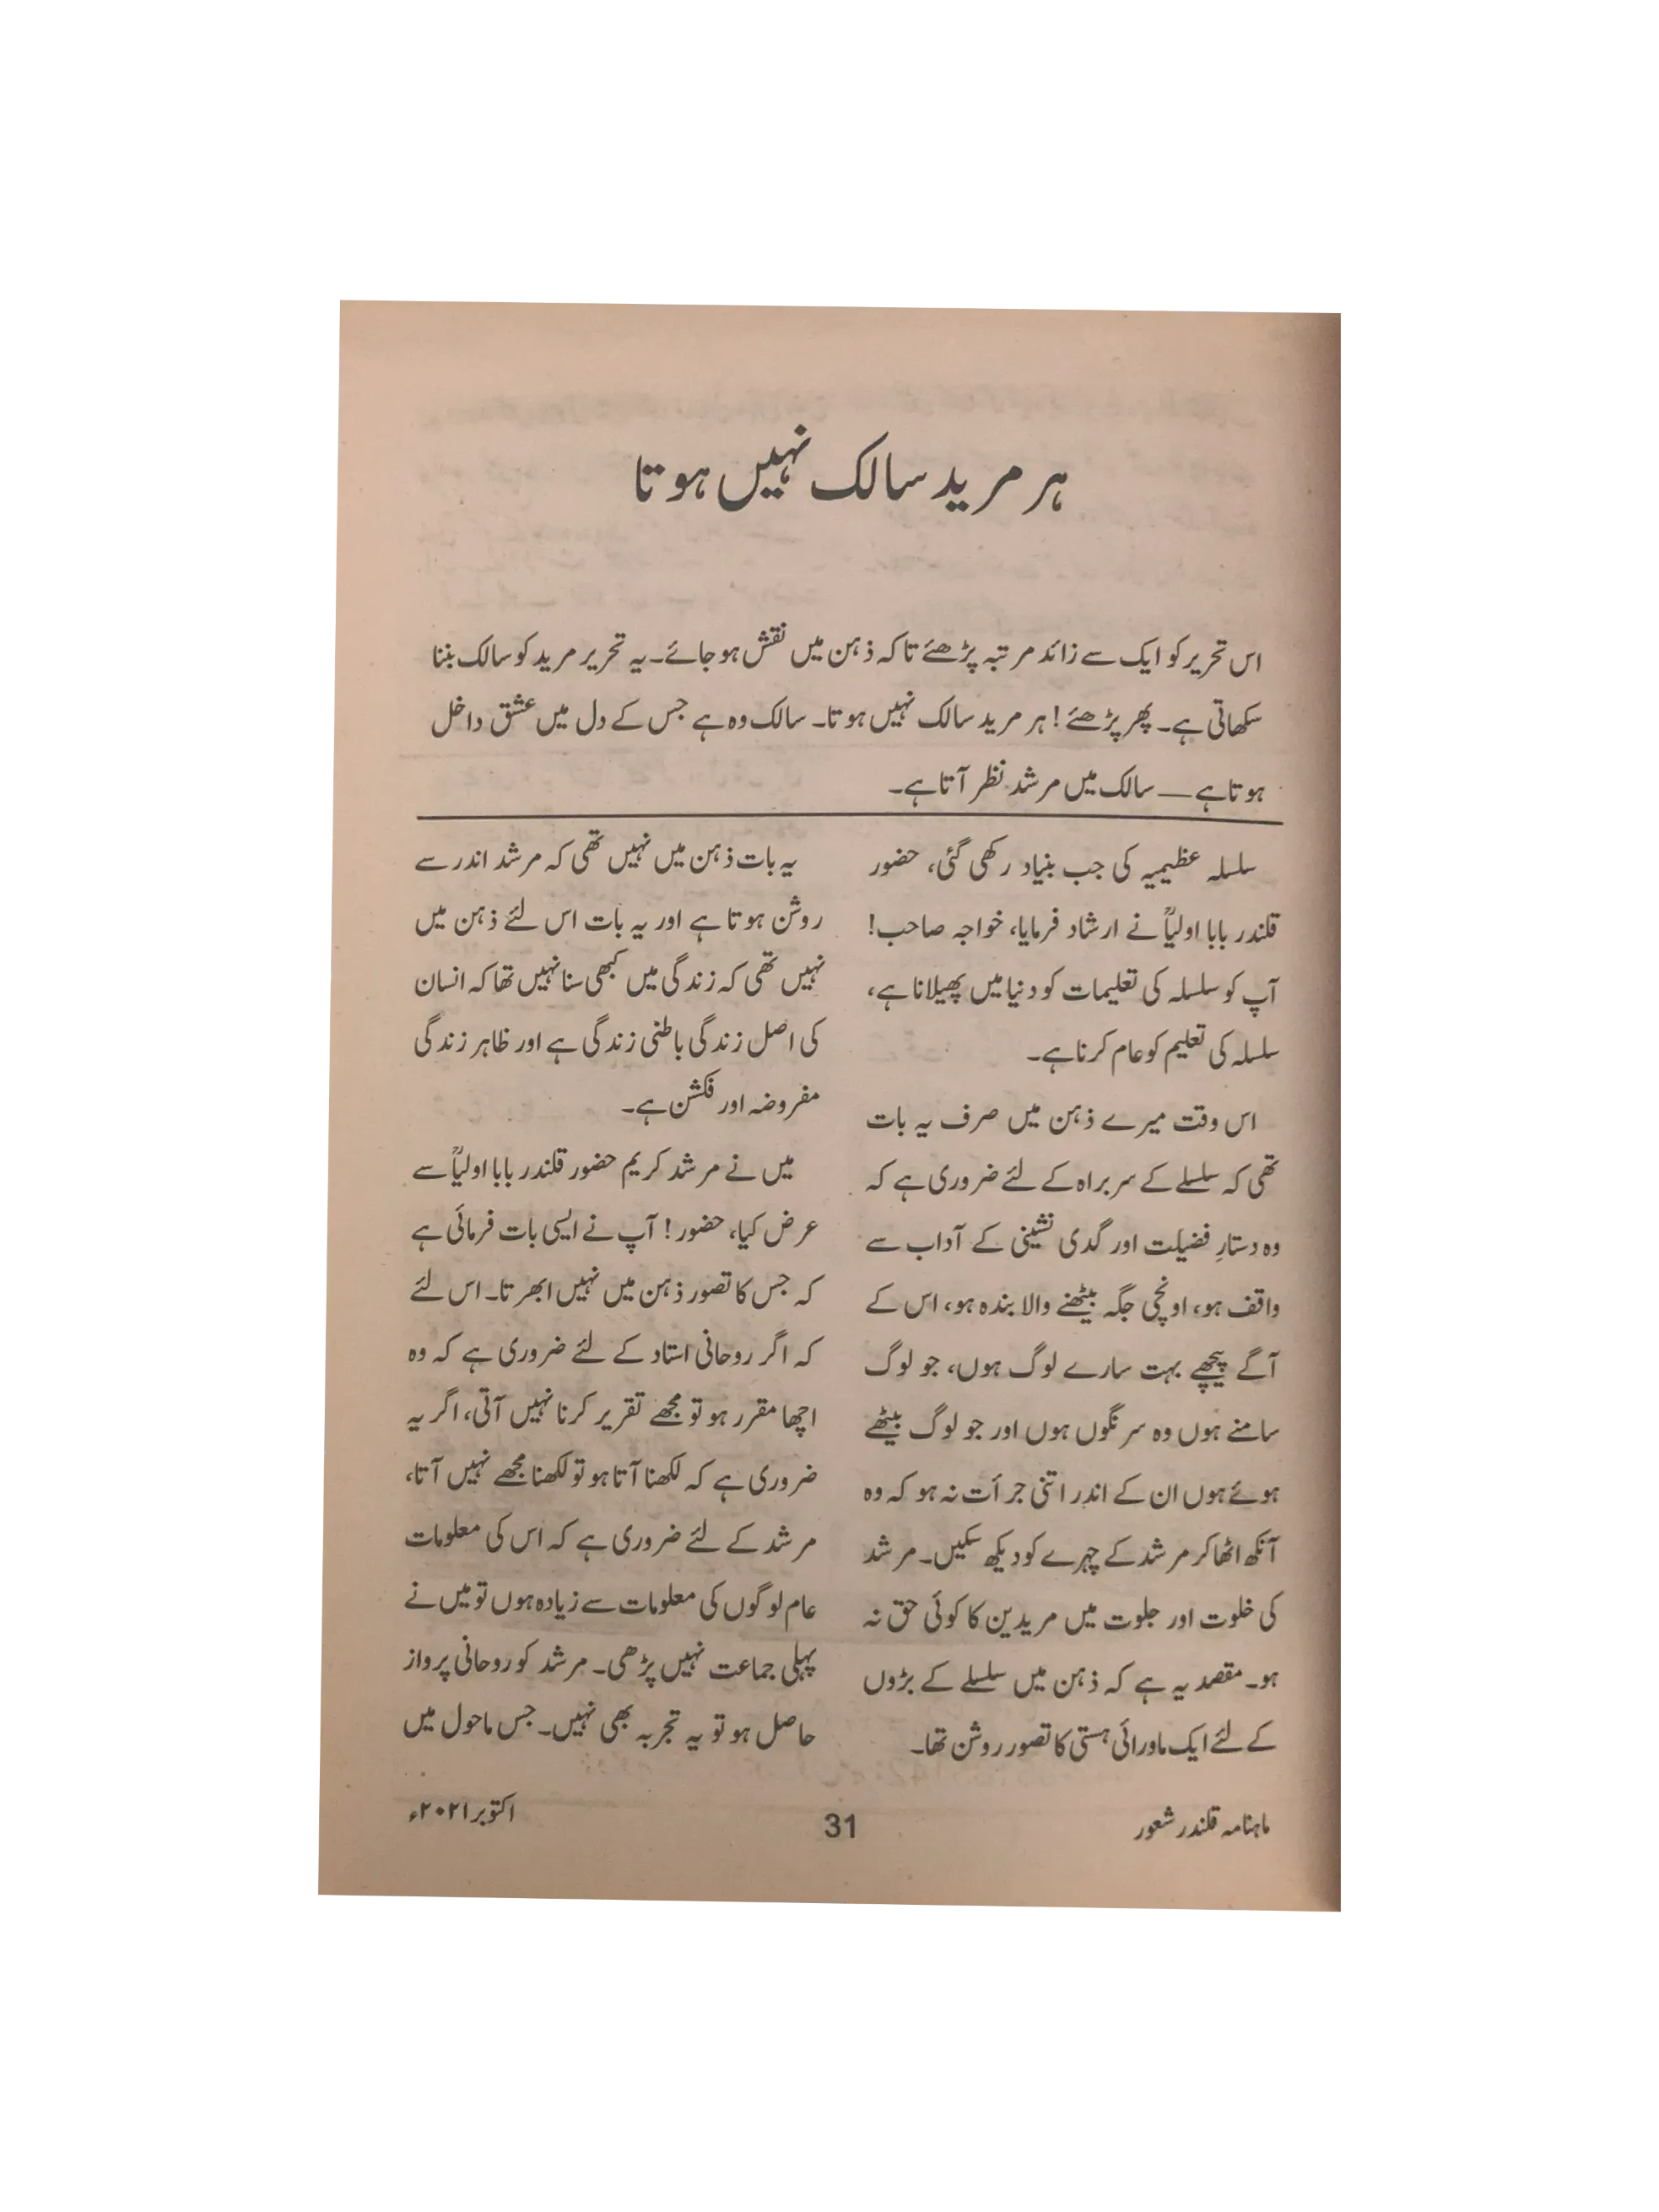 ہر مرید سالک نہیں ہوتا
اس تحریر کو ایک سے زائد مرتبہ پڑھئے تاکہ ذہن میں نقش ہو جائے۔ یہ تحریر مرید کو سالک بننا
سکھاتی ہے۔ پھر پڑھئے! ہر مرید سالک نہیں ہوتا۔ سالک وہ ہے جس کے دل میں عشق داخل
ہوتا ہے — سالک میں مرشد نظر آتا ہے۔
سلسلہ عظیمیہ کی جب بنیاد رکھی گئی، حضور
قلندر بابا اولیاؒ نے ارشاد فرمایا، خواجہ صاحب!
آپ کو سلسلہ کی تعلیمات کو دنیا میں پھیلانا ہے،
سلسلہ کی تعلیم کو عام کرنا ہے۔
اس وقت میرے ذہن میں صرف یہ بات
تھی کہ سلسلے کے سربراہ کے لئے ضروری ہے کہ
وہ دستارِ فضیلت اور گدی نشینی کے آداب سے
واقف ہو، اونچی جگہ بیٹھنے والا بندہ ہو، اس کے
آگے پیچھے بہت سارے لوگ ہوں، جو لوگ
سامنے ہوں وہ سرنگوں ہوں اور جو لوگ بیٹھے
ہوئے ہوں ان کے اندر اتنی جرأت نہ ہو کہ وہ
آنکھ اٹھا کر مرشد کے چہرے کو دیکھ سکیں۔ مرشد
کی خلوت اور جلوت میں مریدین کا کوئی حق نہ
ہو۔ مقصد یہ ہے کہ ذہن میں سلسلے کے بڑوں
کے لئے ایک ماورائی ہستی کا تصور روشن تھا۔
یہ بات ذہن میں نہیں تھی کہ مرشد اندر سے
روشن ہوتا ہے اور یہ بات اس لئے ذہن میں
نہیں تھی کہ زندگی میں کبھی سنا نہیں تھا کہ انسان
کی اصل زندگی باطنی زندگی ہے اور ظاہر زندگی
مفروضہ اور فکشن ہے۔
میں نے مرشد کریم حضور قلندر بابا اولیاؒ سے
عرض کیا، حضور! آپ نے ایسی بات فرمائی ہے
کہ جس کا تصور ذہن میں نہیں ابھرتا۔ اس لئے
کہ اگر روحانی استاد کے لئے ضروری ہے کہ وہ
اچھا مقرر ہو تو مجھے تقریر کرنا نہیں آتی، اگر یہ
ضروری ہے کہ لکھنا آتا ہو تو لکھنا مجھے نہیں آتا،
مرشد کے لئے ضروری ہے کہ اس کی معلومات
عام لوگوں کی معلومات سے زیادہ ہوں تو میں نے
پہلی جماعت نہیں پڑھی۔ مرشد کو روحانی پرواز
حاصل ہو تو یہ تجربہ بھی نہیں۔ جس ماحول میں
ماہنامہ قلندر شعور
31
اکتوبر ۲۰۲۱ء